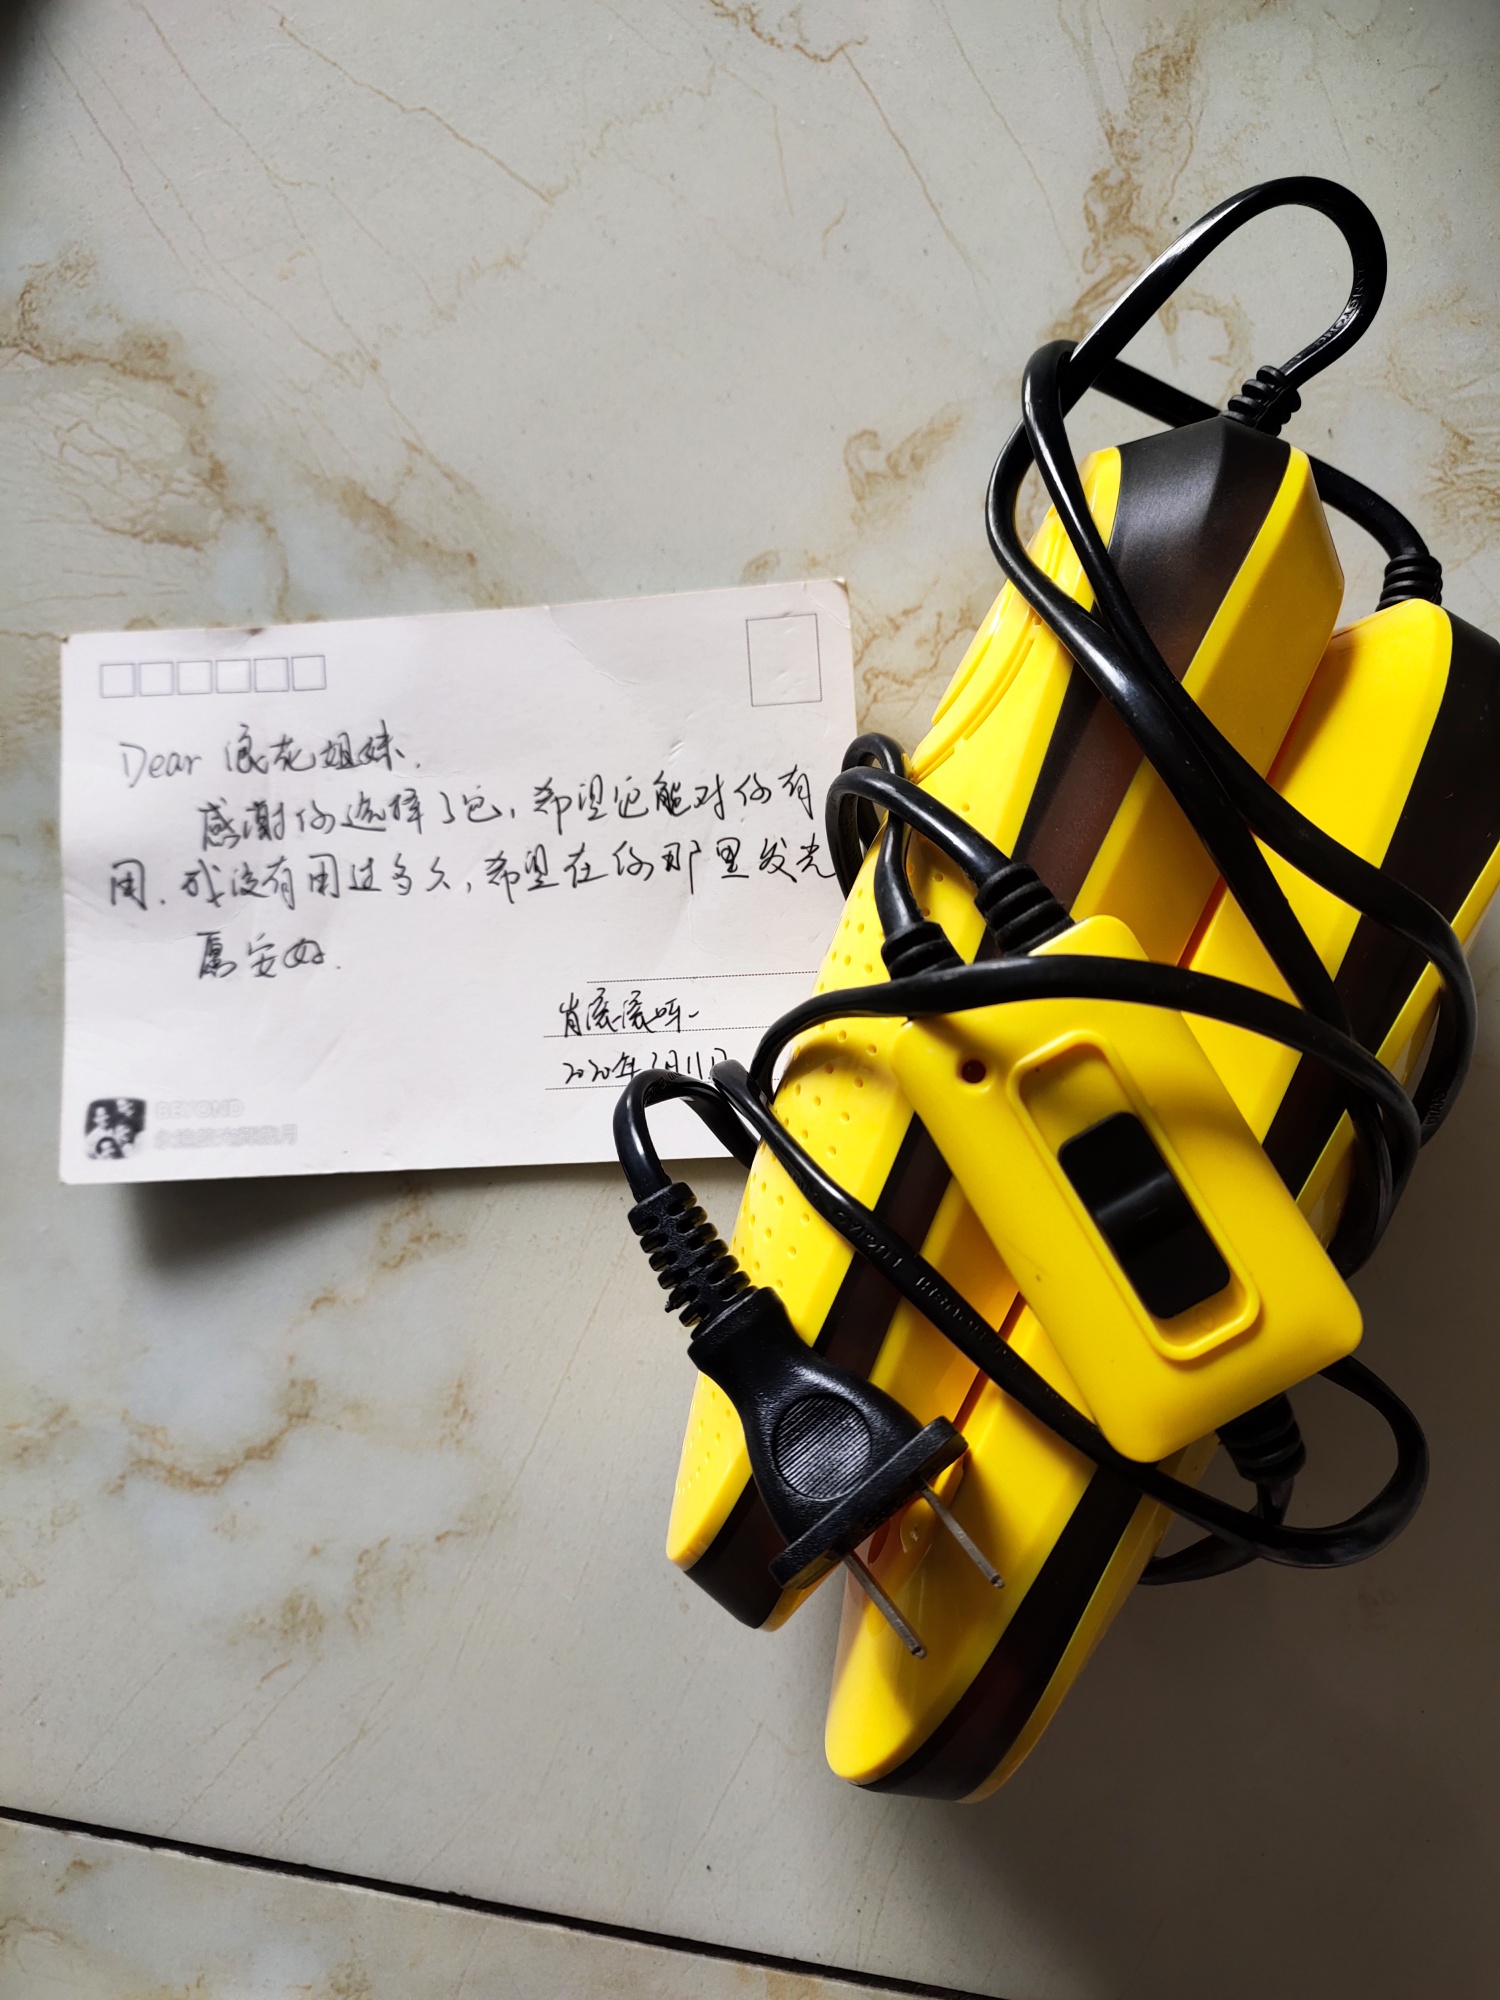 Dear 浪花姐妹.
感谢你选择了它,希望它能对你有
用.我没有用过多久,希望在你那里发光
愿安好.
2020年 月11日
BEYOND